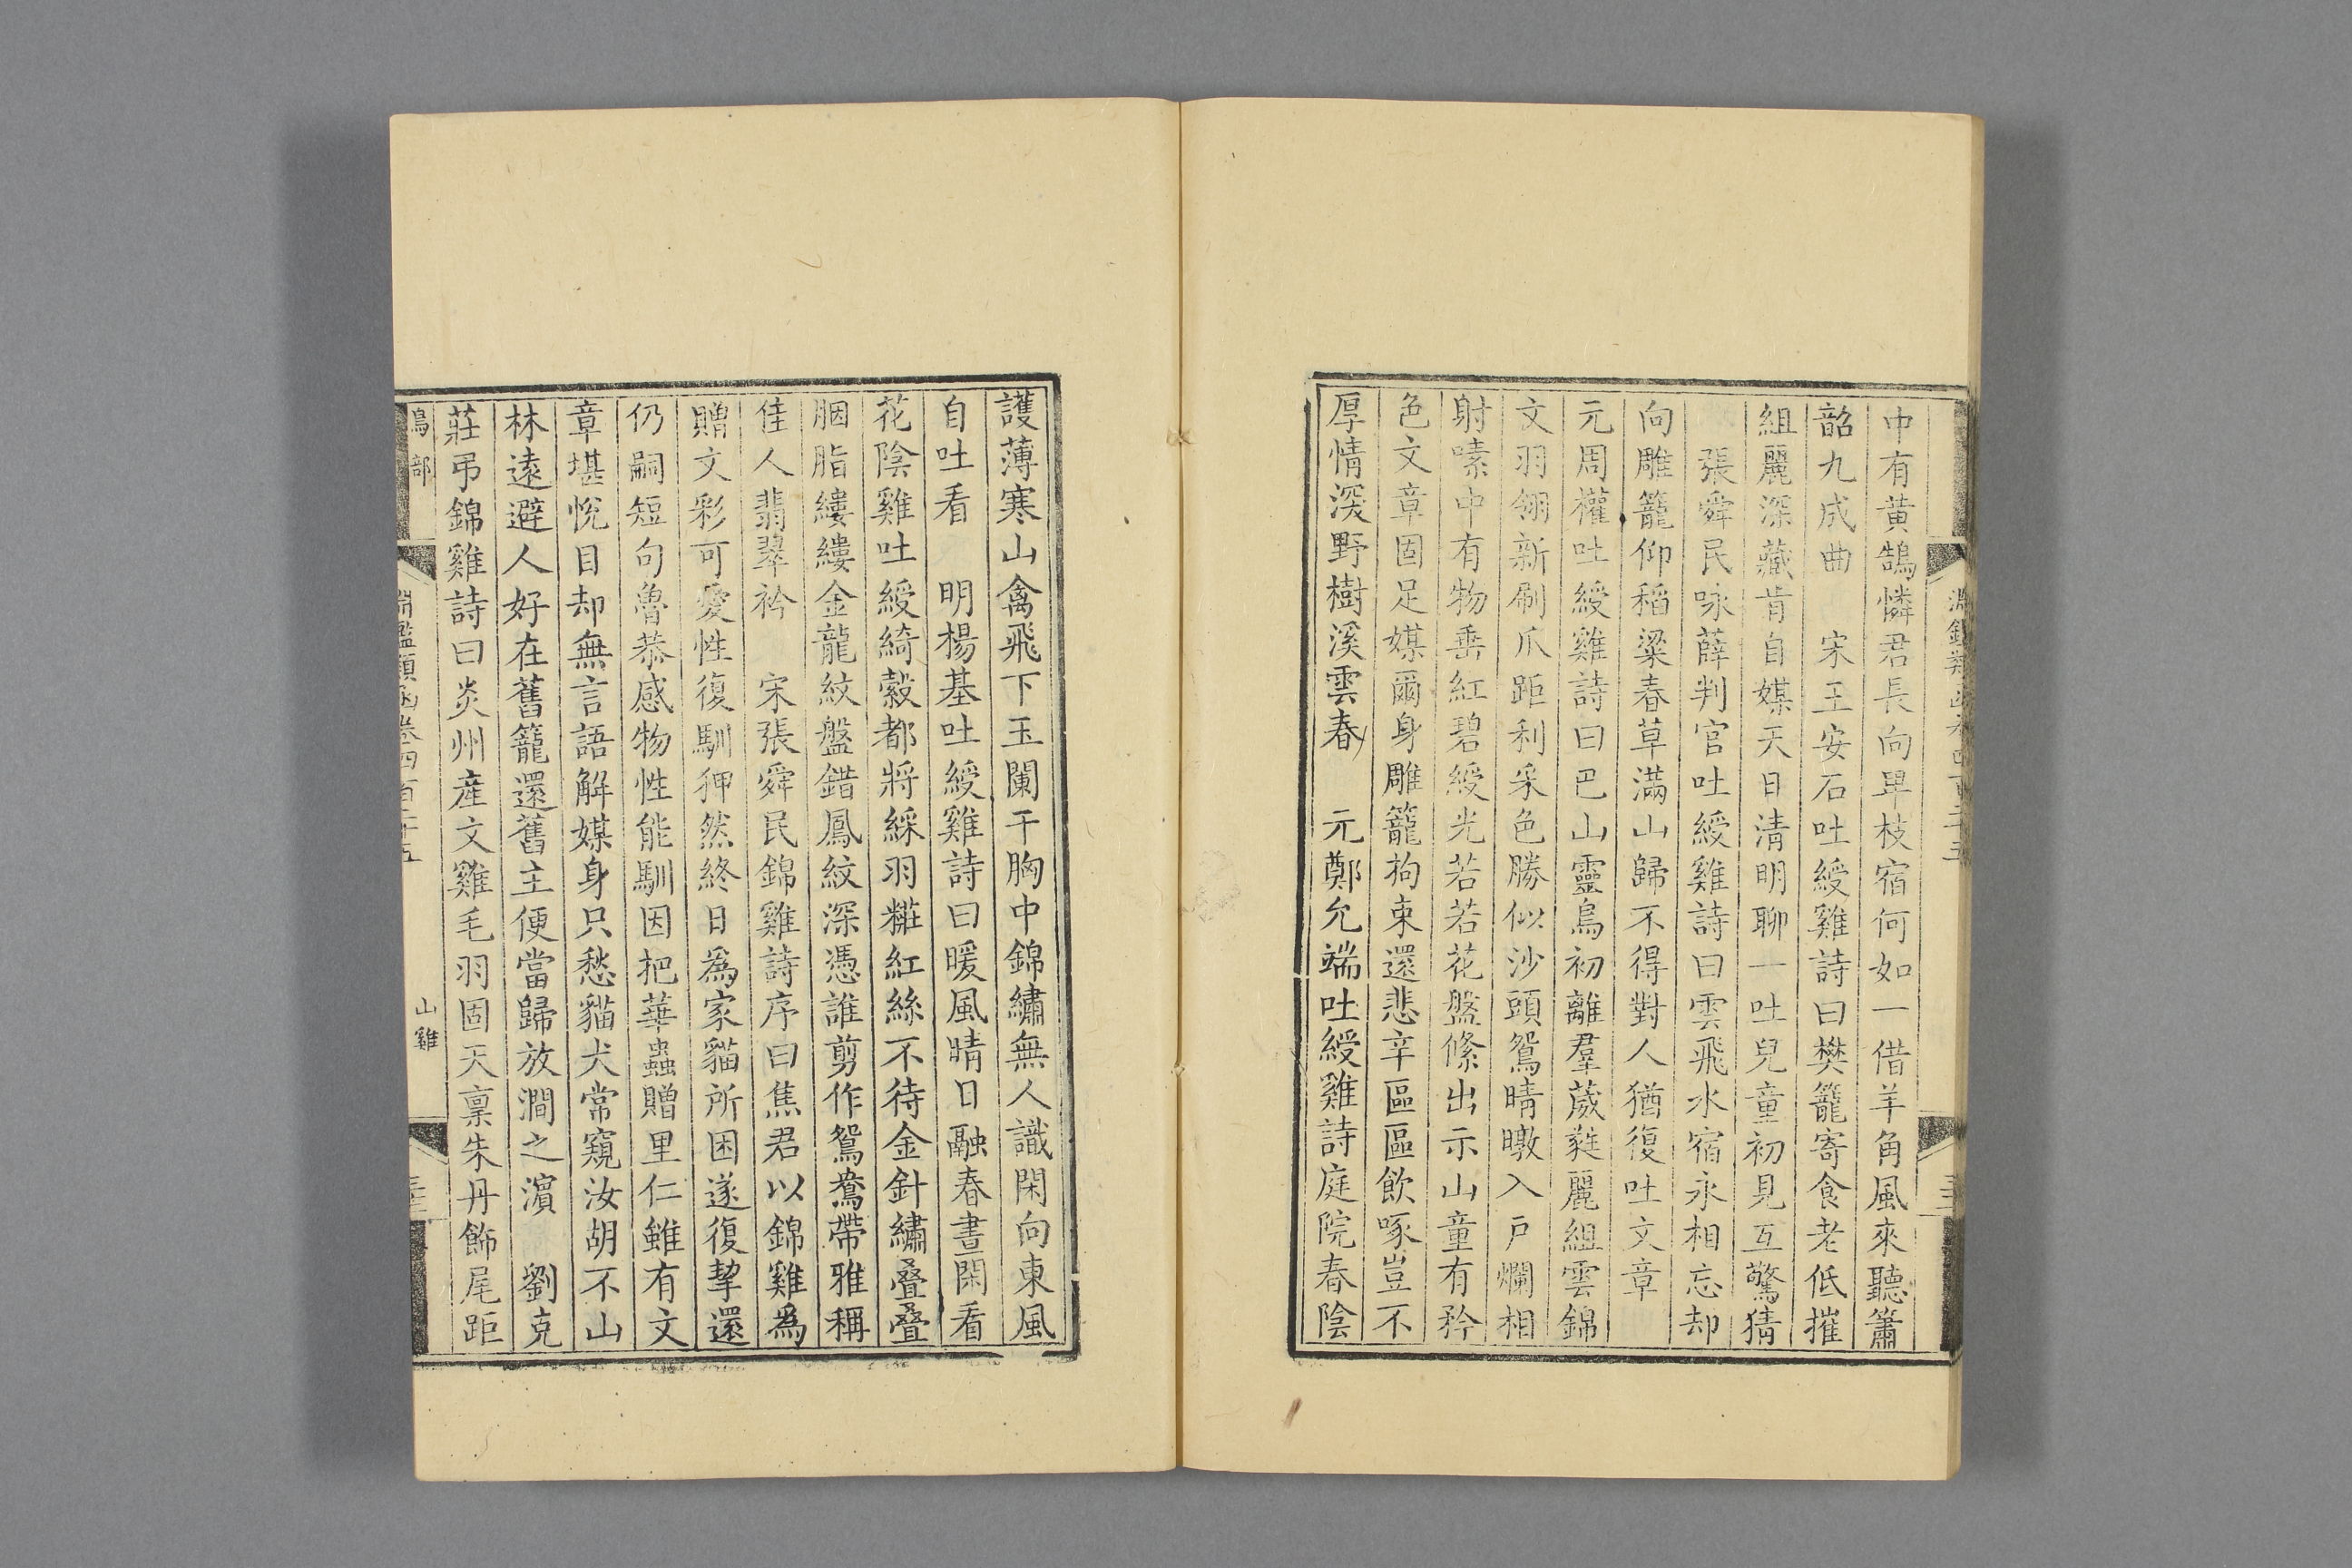 中有黄鵠憐君長向卑枝宿何如一借羊角風來聽簫
韶九成曲　宋王安石吐綬雞詩曰樊籠寄食老低摧
組麗深藏肯自媒天日清明聊一吐兒童初見互驚猜
張舜民咏薛判官吐綬雞詩曰雲飛水宿永相忘却
向雕籠仰稻粱春草滿山歸不得對人猶復吐文章
元周權吐綬雞詩曰巴山靈鳥初離羣葳蕤麗組雲錦
文羽翎新刷爪距利采色勝似沙頭鴛晴暾入戶爛相
射嗉中有物垂紅碧綬光若若花盤絛出示山童有矜
色文章固足媒爾身雕籠拘束還悲辛區區飲啄豈不
厚情深野樹溪雲春　元鄭允端吐綬雞詩庭院春陰
護薄寒山禽飛下玉闌干胸中錦繡無人識閑向東風
自吐看　明楊基吐綬雞詩曰暖風晴日融春晝閑看
花陰雞吐綬綺縠都將綵羽糚紅絲不待金針繡叠叠
胭脂縷縷金龍紋盤錯鳳紋深憑誰剪作鴛鴦帶雅稱
佳人翡翠衿　宋張舜民錦雞詩序曰焦君以錦雞爲
贈文彩可愛性復馴狎然終日爲家貓所困遂復挈還
仍嗣短句魯恭感物性能馴因把華蟲贈里仁雖有文
章堪悅目却無言語解媒身只愁貓犬常窺汝胡不山
林遠避人好在舊籠還舊主便當歸放澗之濵　劉克
莊弔錦雞詩曰炎州産文雞毛羽固天稟朱丹飾尾距
鳥部
淵鑑類函卷四百二十五
山雞